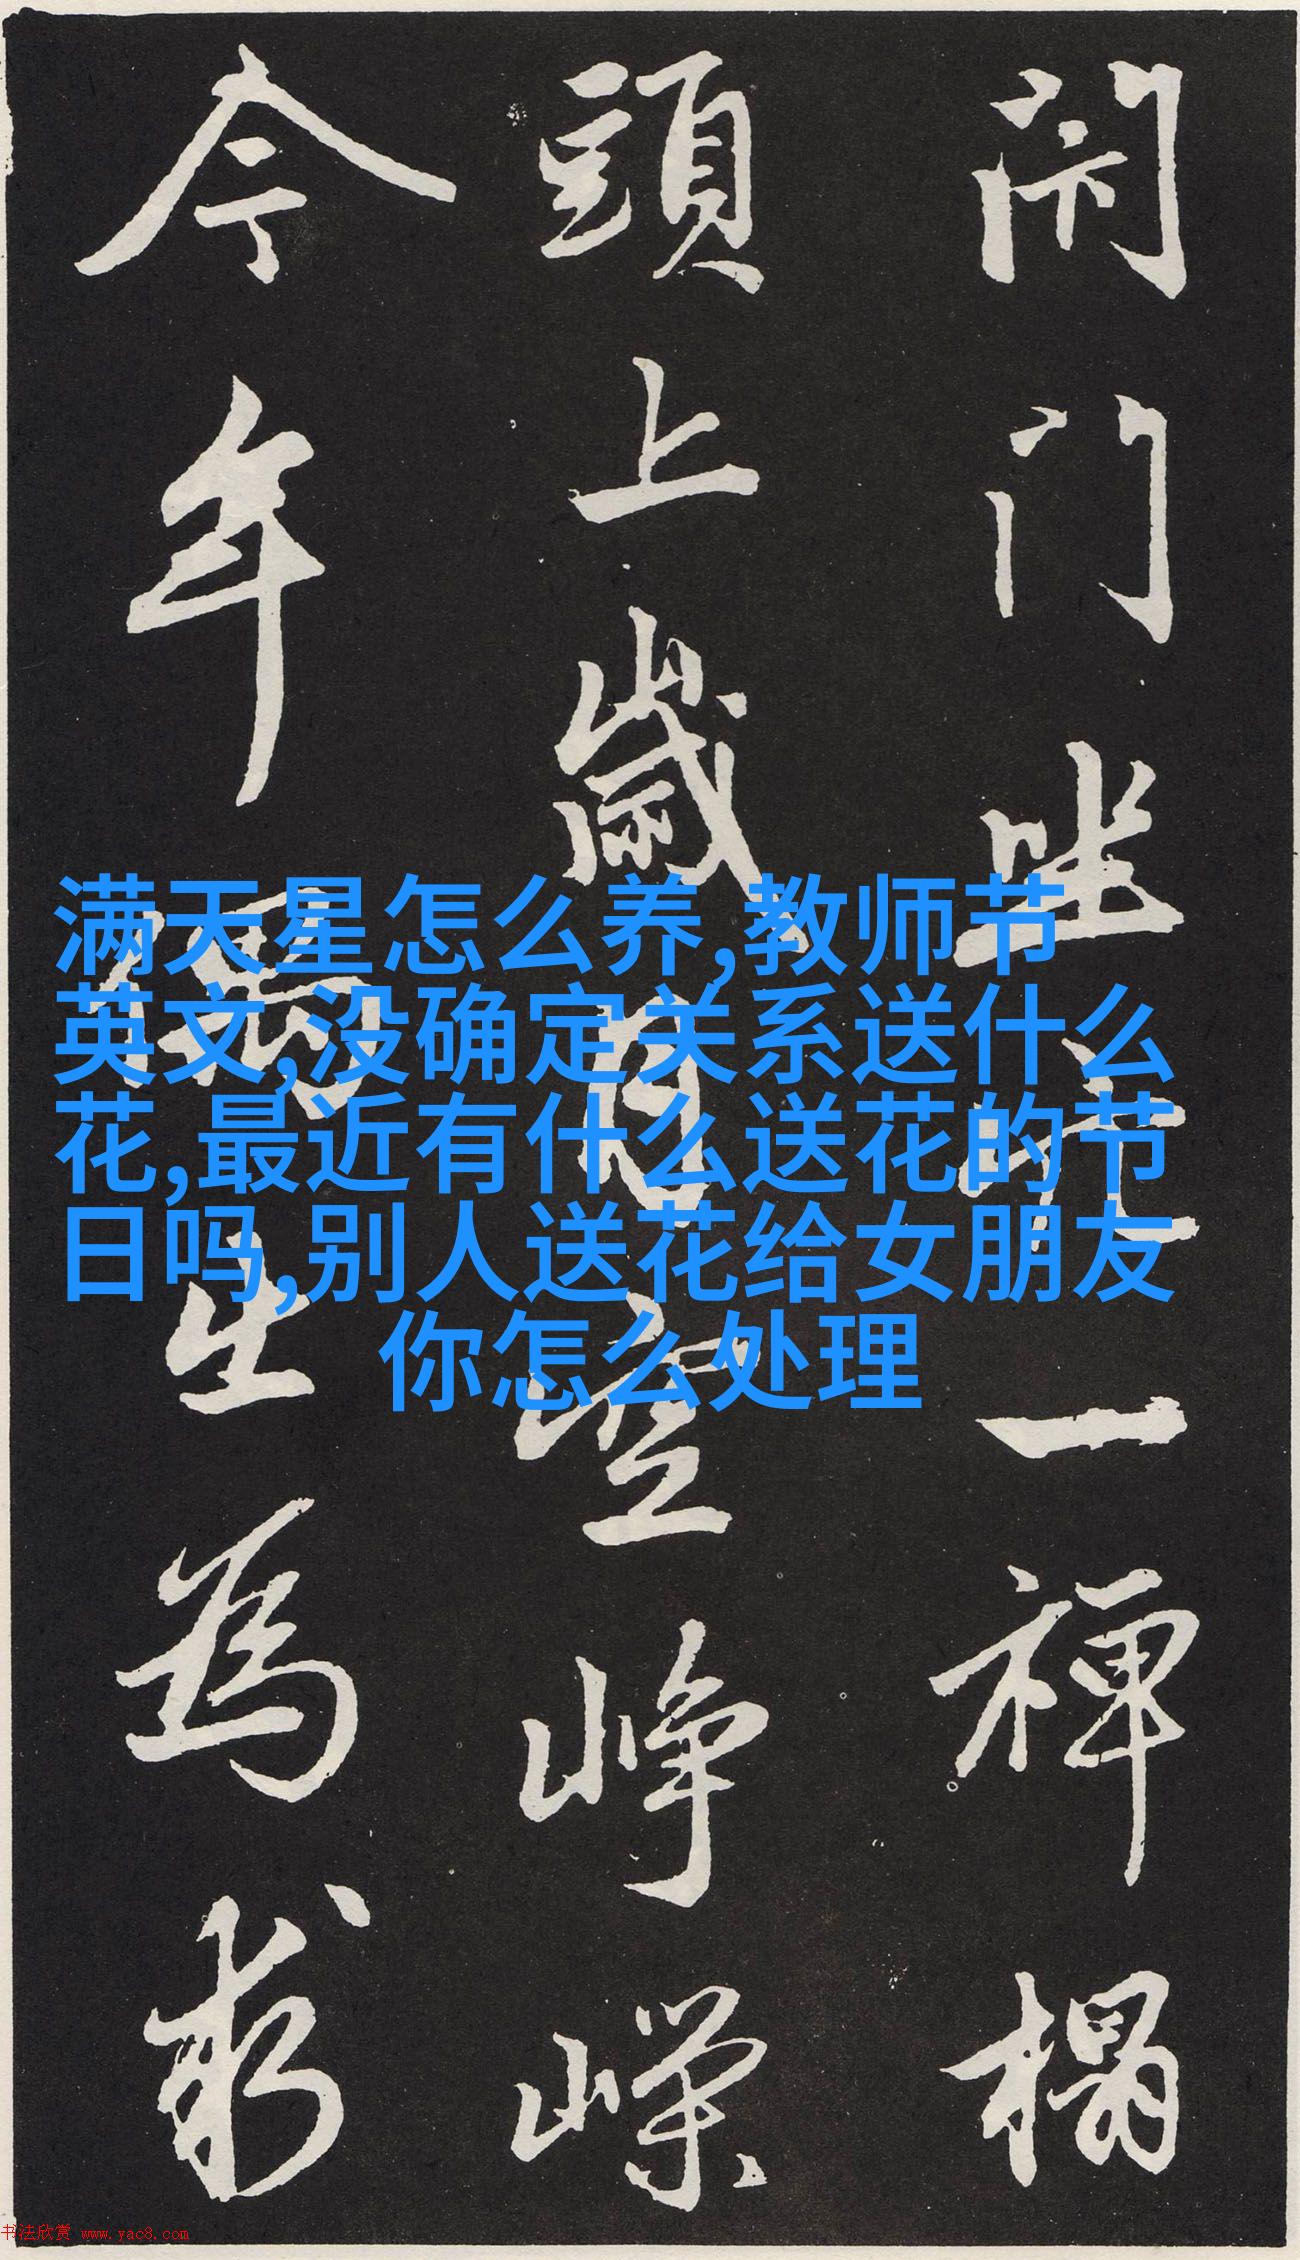 閇门坐穴一禅榻
頭上歲月空峥嶸
今年偶出為求
满天星怎么养,教师节
英文,没确定关系送什么
花,最近有什么送花的节
日吗,别人送花给女朋友
你怎么处理
书法欣赏 www.yac8.com